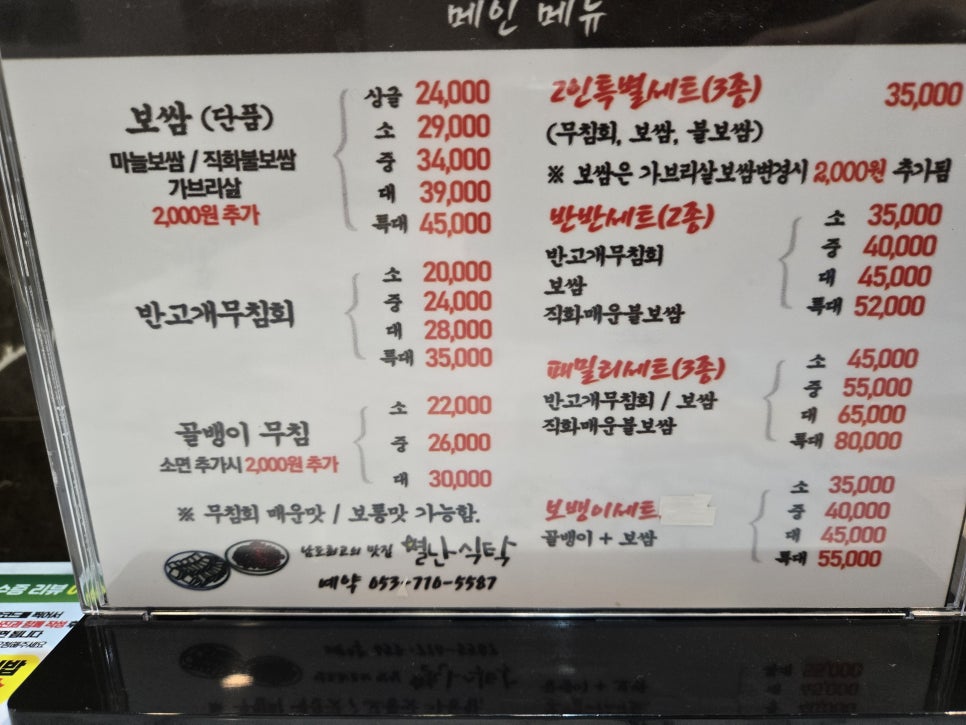 메인 메뉴
보쌈 (단품)
마늘보쌈 / 직화불보쌈
가브리살
2,000원 추가
싱글 24,000
소 29,000
중 34,000
대 39,000
특대 45,000
반고개무침회
소 20,000
중 24,000
대 28,000
특대 35,000
골뱅이 무침
소면 추가시 2,000원 추가
소 22,000
중 26,000
대 30,000
※ 무침회 매운맛 / 보통맛 가능함.
맛집 별난식탁
예약 053-710-5587
2인특별세트(3종) 35,000
(무침회, 보쌈, 불보쌈)
※ 보쌈은 가브리살보쌈변경시 2,000원 추가됨
반반세트(2종)
반고개무침회
보쌈
직화매운불보쌈
소 35,000
중 40,000
대 45,000
특대 52,000
패밀리세트(3종)
반고개무침회 / 보쌈
직화매운불보쌈
소 45,000
중 55,000
대 65,000
특대 80,000
보뱅이세트
골뱅이 + 보쌈
소 35,000
중 40,000
대 45,000
특대 55,000